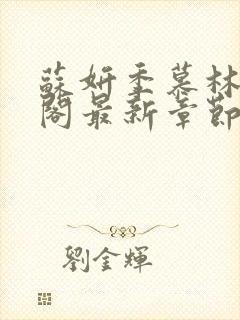 蘇妍季慕林
閣最新章節
劉金輝